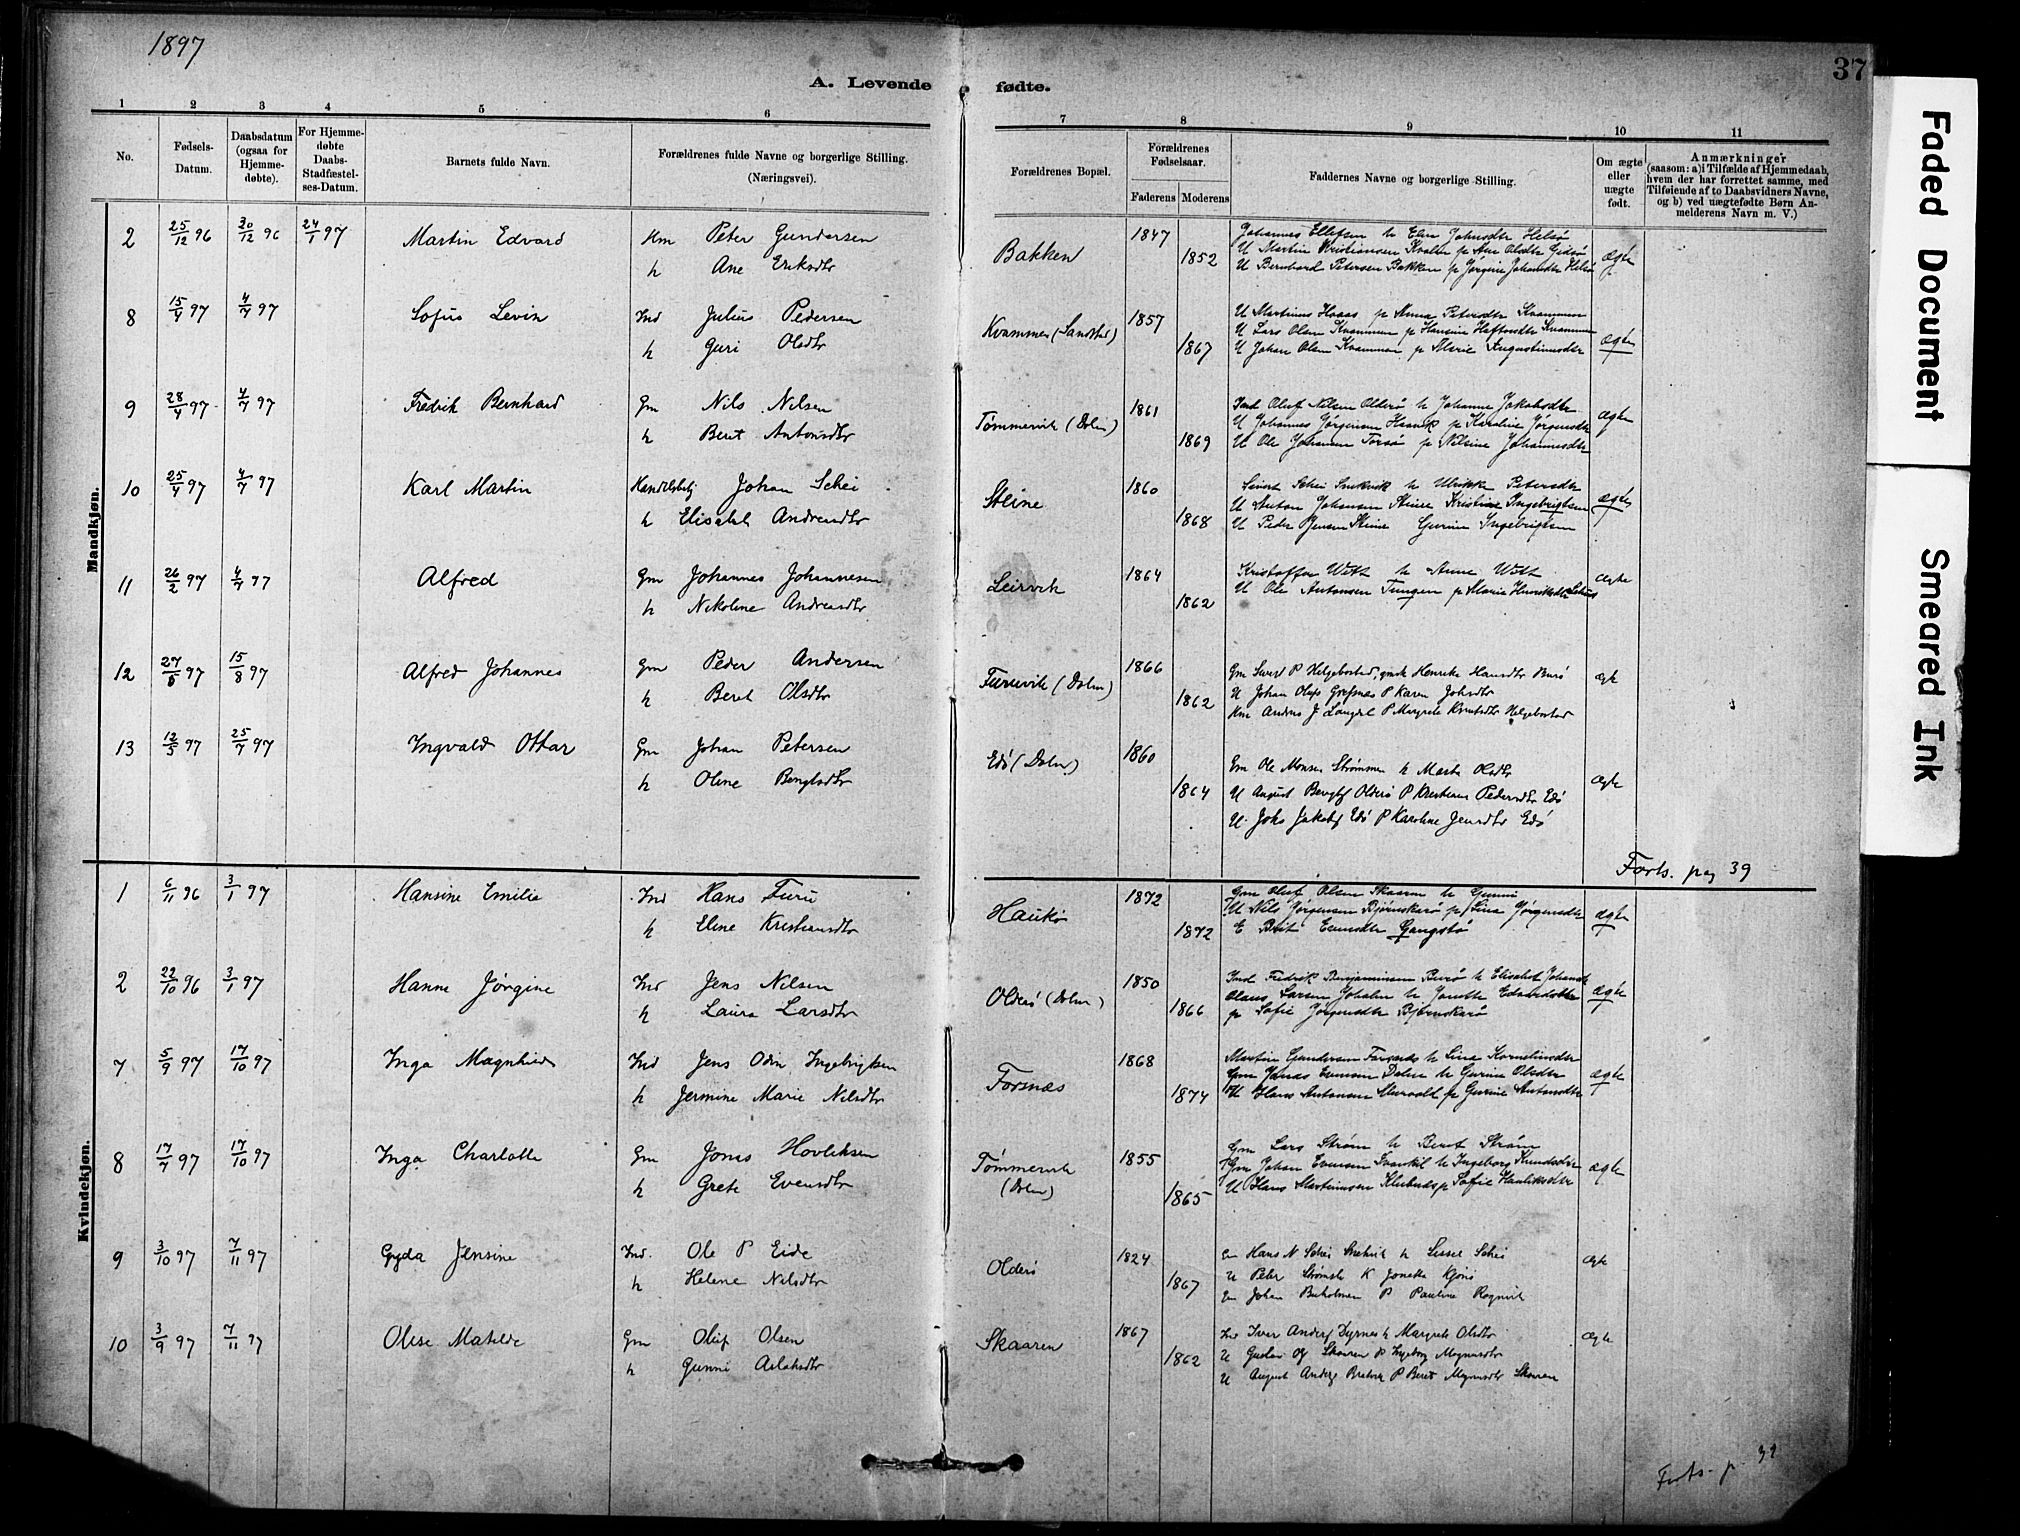 1897
37
A. Levende fødte.
1 2 3 4 5 6 7 8 9 10 11
No.
Fødsels-Datum.
Daabsdatum (ogsaa for Hjemme-døbte).
For Hjemme-døbte Daabs-Stadfæstel-ses-Datum.
Barnets fulde Navn.
Forældrenes fulde Navne og borgerlige Stilling. (Næringsvei).
Forældrenes Bopæl.
Forældrenes Fødselsaar.
Faderens Moderens
Faddernes Navne og borgerlige Stilling.
Om ægte eller uægte født.
Anmærkninger (saasom: a) i Tilfælde af Hjemmedaab, hvem der har forrettet samme, med Tilføiende af to Daabsvidners Navne, og b) ved uægtefødte Børn Anmelderens Navn m. V.)
Mandkjøn.
2 25/12 96 30/12 96 24/1 97 Martin Edvard Km Peter Gundersen Bakken 1847 Johannes Ellefsen h Elen Johnsdtr Helsø
h Ane Eriksdtr 1852 U Martin Kristiansen p Ane Olsdtr ægte
U Bernhard Petersen Bakken p Jørgine Johansdtr Helsø
8 15/4 97 4/7 97 Sofus Levin Ind Julius Pedersen Kvammen (Sandstad) 1857 U Martinus Haaas p Anna Petersdtr Kvammen
h Guri Olsdtr 1867 U Lars Olsen Kvammen p Hansine Kvammen ægte
U Johan Olsen Kvammen p Marie Augustinusdtr
9 28/4 97 4/7 97 Fredrik Bernhard Gm Nils Nilsen Tømmervik (Dolm) 1861 Ind Oluf Nilsen Olderø h Johanna Jakobsdtr
h Berit Antonsdtr 1869 U Johannes Jørgensen p Karoline Jørgensdtr ægte
U Ole Johansen Torsø p Nilsine Johannesdtr
10 25/4 97 4/7 97 Karl Martin Handelsbetj Johan Schei Steine 1860 Schei h Ulrikke Petersdtr
h Elisabet Andreasdtr 1868 U Anton Johansen Steine Kristine Ingebrigtsen ægte
U Peder Jensen Steine Gurine Ingebrigtsen
11 26/2 97 4/7 97 Alfred Gm Johannes Johannesen Leirvik 1864 Kristoffer Witt h Anne Witt
h Nikoline Andreasdtr 1862 U Ole Antonsen Tungen p Marie ægte
12 27/5 97 15/8 97 Alfred Johannes Gm Peder Andersen Furuvik (Dolm) 1866 Gm P Helgebostad, gmk Henrika Hansdtr Burø
h Beret Olsdtr 1862 U Johan Olufs P Karen Johsdtr ægte
Km Anders J P Margrete Knutsdtr Helgebostad
13 12/5 97 25/7 97 Ingvald Ottar Gm Johan Petersen Edø (Dolm) 1860 Em Ole Monsen Strømmen h Marta Olsdtr
h Oline Bengtsdtr 1864 U August Olderø P Kristiane Pedersdtr Edø ægte
U. Johs Jakobsf Edø P Karoline Jensdtr Edø
Forts. pag 39
Kvindekjøn.
1 6/11 96 3/1 97 Hansine Emilie Ind Hans Furu Haukø 1872 Gm Oluf Olsen Skaaren h Gunni
h Eline Kristiansdtr 1872 U Nils Jørgensen Bjørnskarø p Lina Jørgensdtr ægte
E Brit Evensdtr Gangstø
2 22/10 96 3/1 97 Hanne Jørgine Ind Jens Nilsen Olderø (Dolm) 1850 Ind Fredrik Benjaminsen Burø h Elisabet Johansdtr
h Laura Larsdtr 1866 Olaus Larsen h Edvardsdtr ægte
p Sofie Jørgensdtr Bjørnskarø
7 5/9 97 17/10 97 Inga Magnhild Ind Jens Odin Ingebrigtsen Forsnæs 1868 Martin Gundersen Forsnæs h Lina Korneliusdtr
h Jermine Marie Nilsdtr 1874 Gm Jonas Evensen Dolm h Gurine Olsdtr ægte
U Hans Antonsen p Gurine Antonsdtr
8 17/7 97 17/10 97 Inga Charlotte Gm Jonas Hovleksen Tømmervik (Dolm) 1855 Gm Lars Strøm h Berit Strøm
h Grete Evensdtr 1865 Gm Johan Evensen h Ingeborg Knudsdtr ægte
U Hans Martinusen p Sofie
9 3/10 97 7/11 97 Gyda Jensine Ind. Ole P Eide Olderø 1824 Hans N Schei h Schei
h Helene Nilsdtr 1867 U Peter K Joneka ægte
Johan P Pauline
10 3/9 97 7/11 97 Olise Matilde Gm Oluf Olsen Skaaren 1867 Ind Iver Andersf Dyrnes h Margrete Olsdtr
h Gunni Aslaksdtr 1862 U Gustav Olsf Skaaren P Ingeborg Magnusdtr ægte
U August Andersf P Beret Magnusdtr Skaaren
Forts. p. 39
Faded Document
Smeared Ink